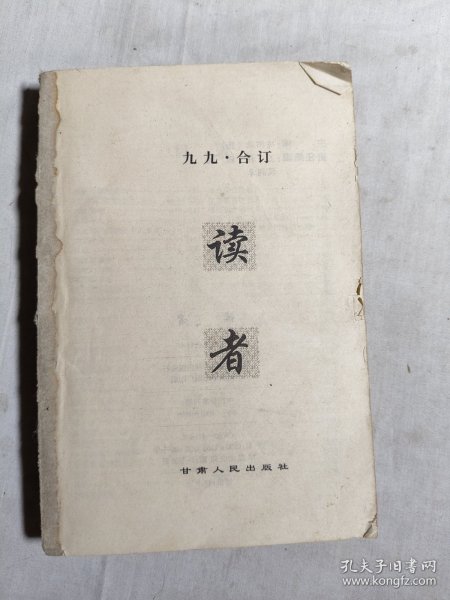 九九·合订
读
者
甘肃人民出版社
孔夫子旧书网
www.kongfz.com